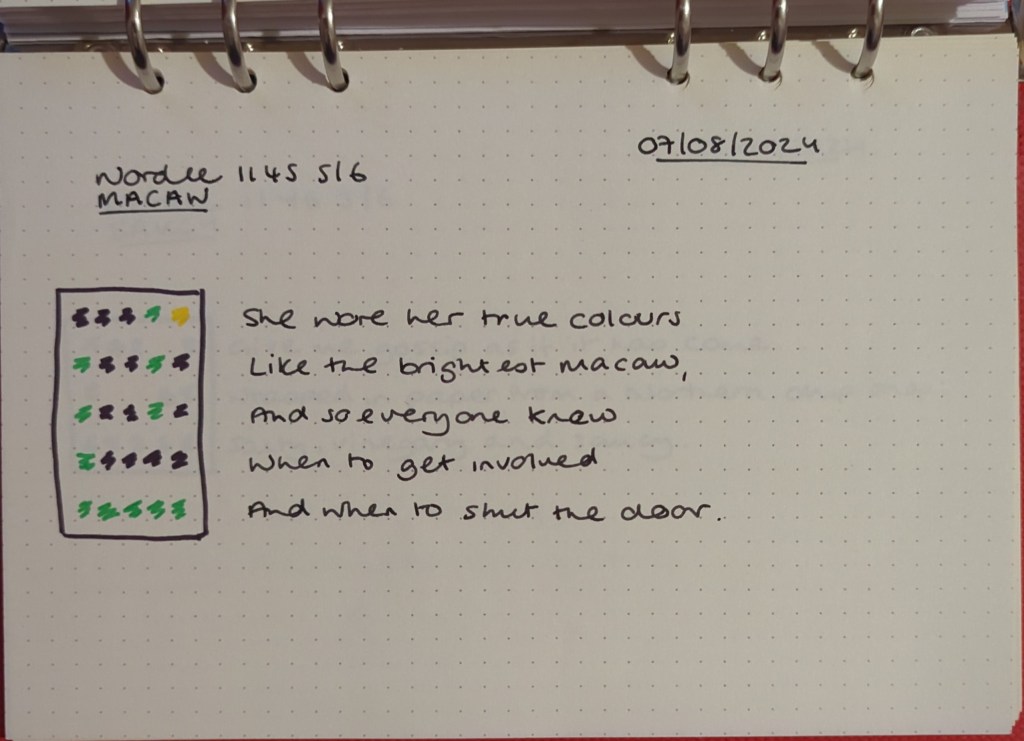 07/08/2024
Wordle 1145 5/6
MACAW
She wore her true colours
Like the brightest macaw,
And so everyone knew
When to get involved
And when to shut the door.